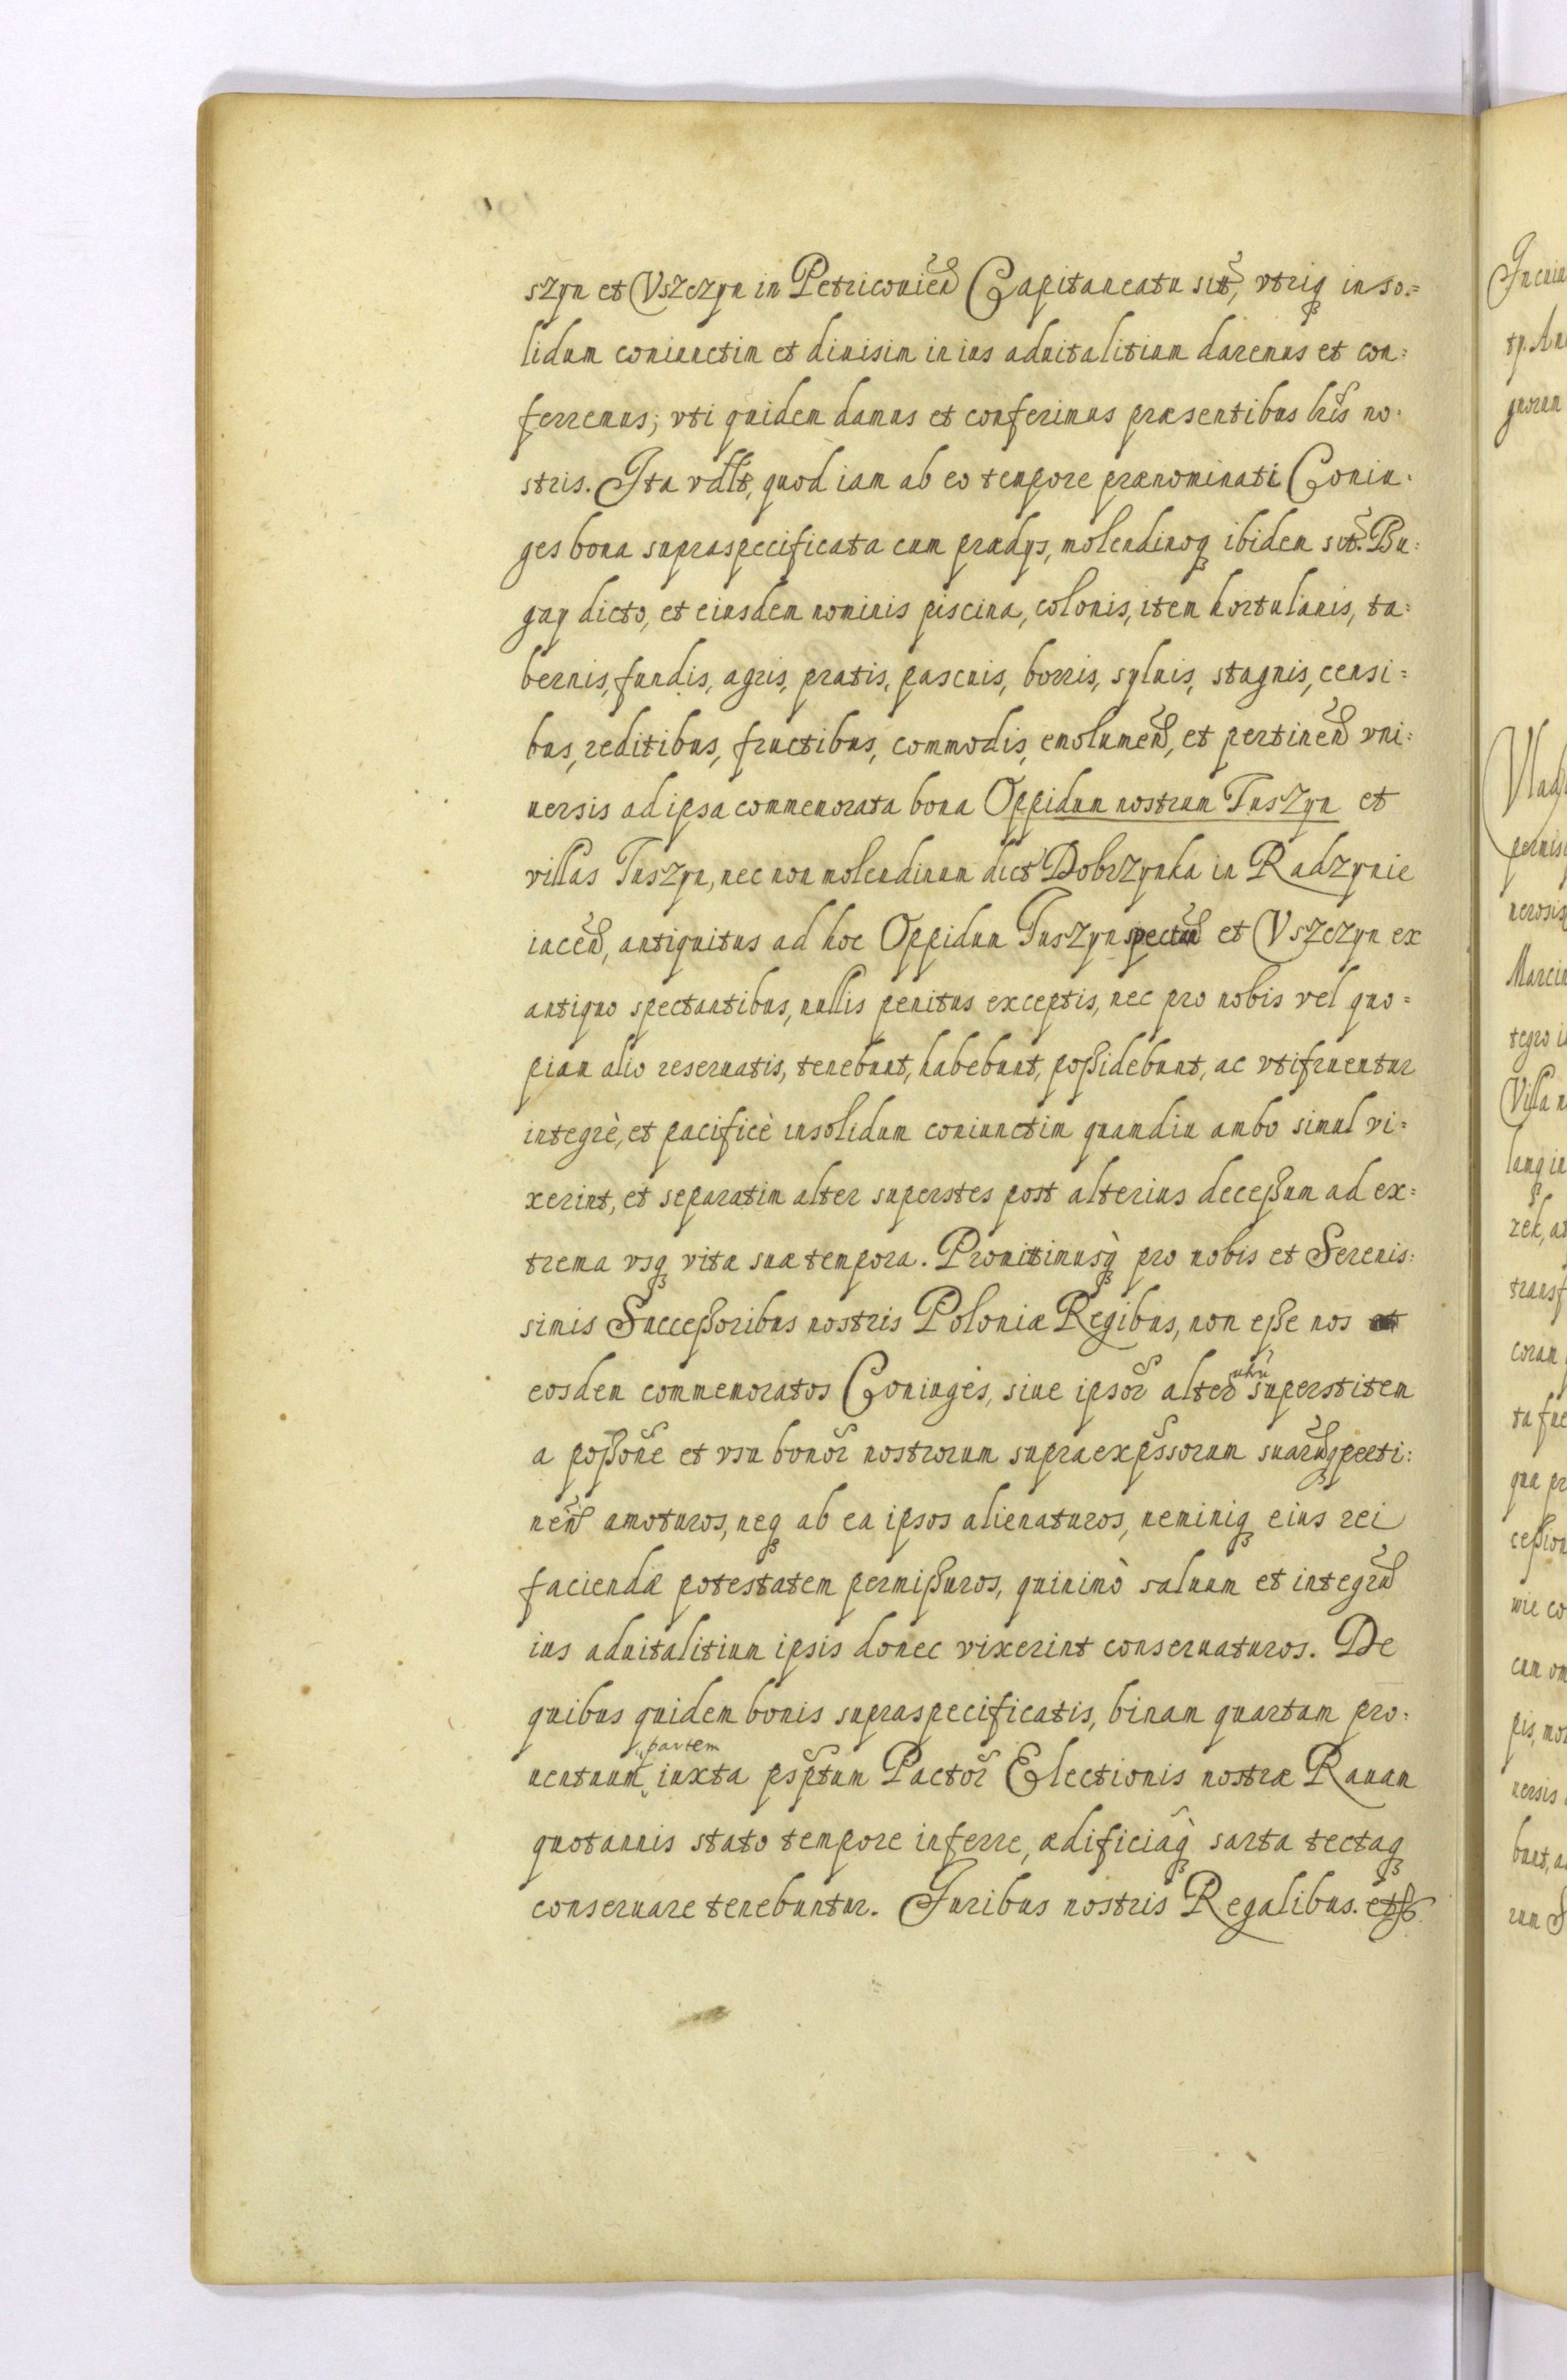 szyn et Vszczyn in Petriconień Capitaneatu sit, vtriq in so=
lidum coniunctim et diuisim in ius aduitalitium daremus et con:
ferremus; vti quidem damus et conferimus præsentibus lris no:
stris. Ita vdlt, quod iam ab eo tempore prænominati Coniu:
ges bona supraspecificata cum prædys, molendinoq ibidem sit. Bu:
gay dicto, et eiusdem nominis piscina, colonis, item hortulanis, ta:
bernis, fundis, agris, pratis, pascuis, borris, syluis, stagnis, censi=
bus, reditibus, fructibus, commodis, emolumeń, et pertineń vni:
uersis ad ipsa commemorata bona Oppidum nostrum Tuszyn et
villas Tuszyn, nec non molendinum dict Dobrzynka in Radzynie
iaceń, antiquitus ad hoc Oppidum Tuszyn spectań et Vszczyn ex
antiquo spectantibus, nullis penitus exceptis, nec pro nobis vel quo=
piam alio reseruatis, tenebunt, habebunt, poßidebunt, ac vtifruentur
integrè, et pacificè insolidum coniunctim quamdiu ambo simul vi=
xerint, et separatim alter superstes post alterius deceßum ad ex=
trema vsq vitæ suæ tempora. Promitimusq pro nobis et Serenis:
simis Succeßoribus nostris Poloniæ Regibus, non eße nos
eosdem commemoratos Coniuges, siue ipsor alter superstitem
a poßone et vsu bonor nostrorum supraexpssorum suarumq perti:
neń amoturos, neq ab ea ipsos alienaturos, neminiq eius rei
faciendæ potestatem permißuros, quinimò saluum et integrum
ius aduitalitium ipsis donec vixerint conseruaturos. De
quibus quidem bonis supraspecificatis, binam quartam pro:
partem
uentuum iuxta psptum Pactor Electionis nostræ Rauam
quotannis stato tempore inferre, ædificiaq sarta tectaq
conseruare tenebuntur. Iuribus nostris Regalibus.